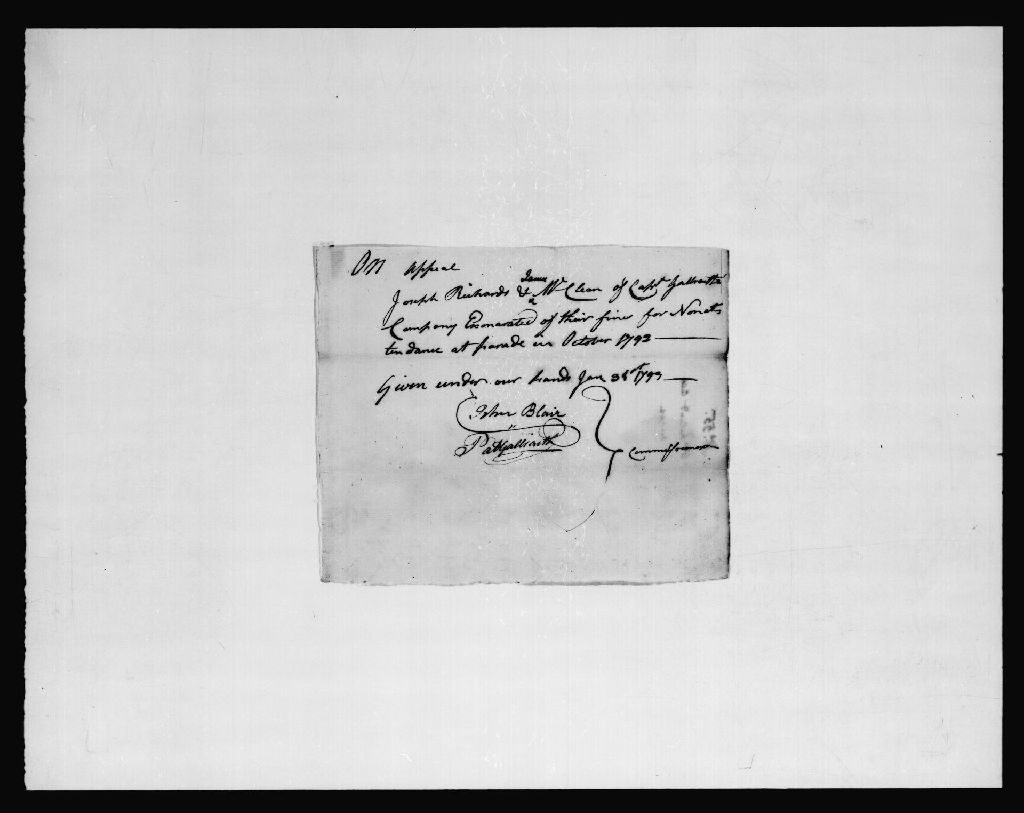 On Appeal
Joseph Richards & James McClean of Capt. Galbraiths
Company Exonarated of their fines for Nonat
tendance at parade in October 1793
Given under our hands Jan 31st 1793
John Blair
Pat Galbraith
Commissioners